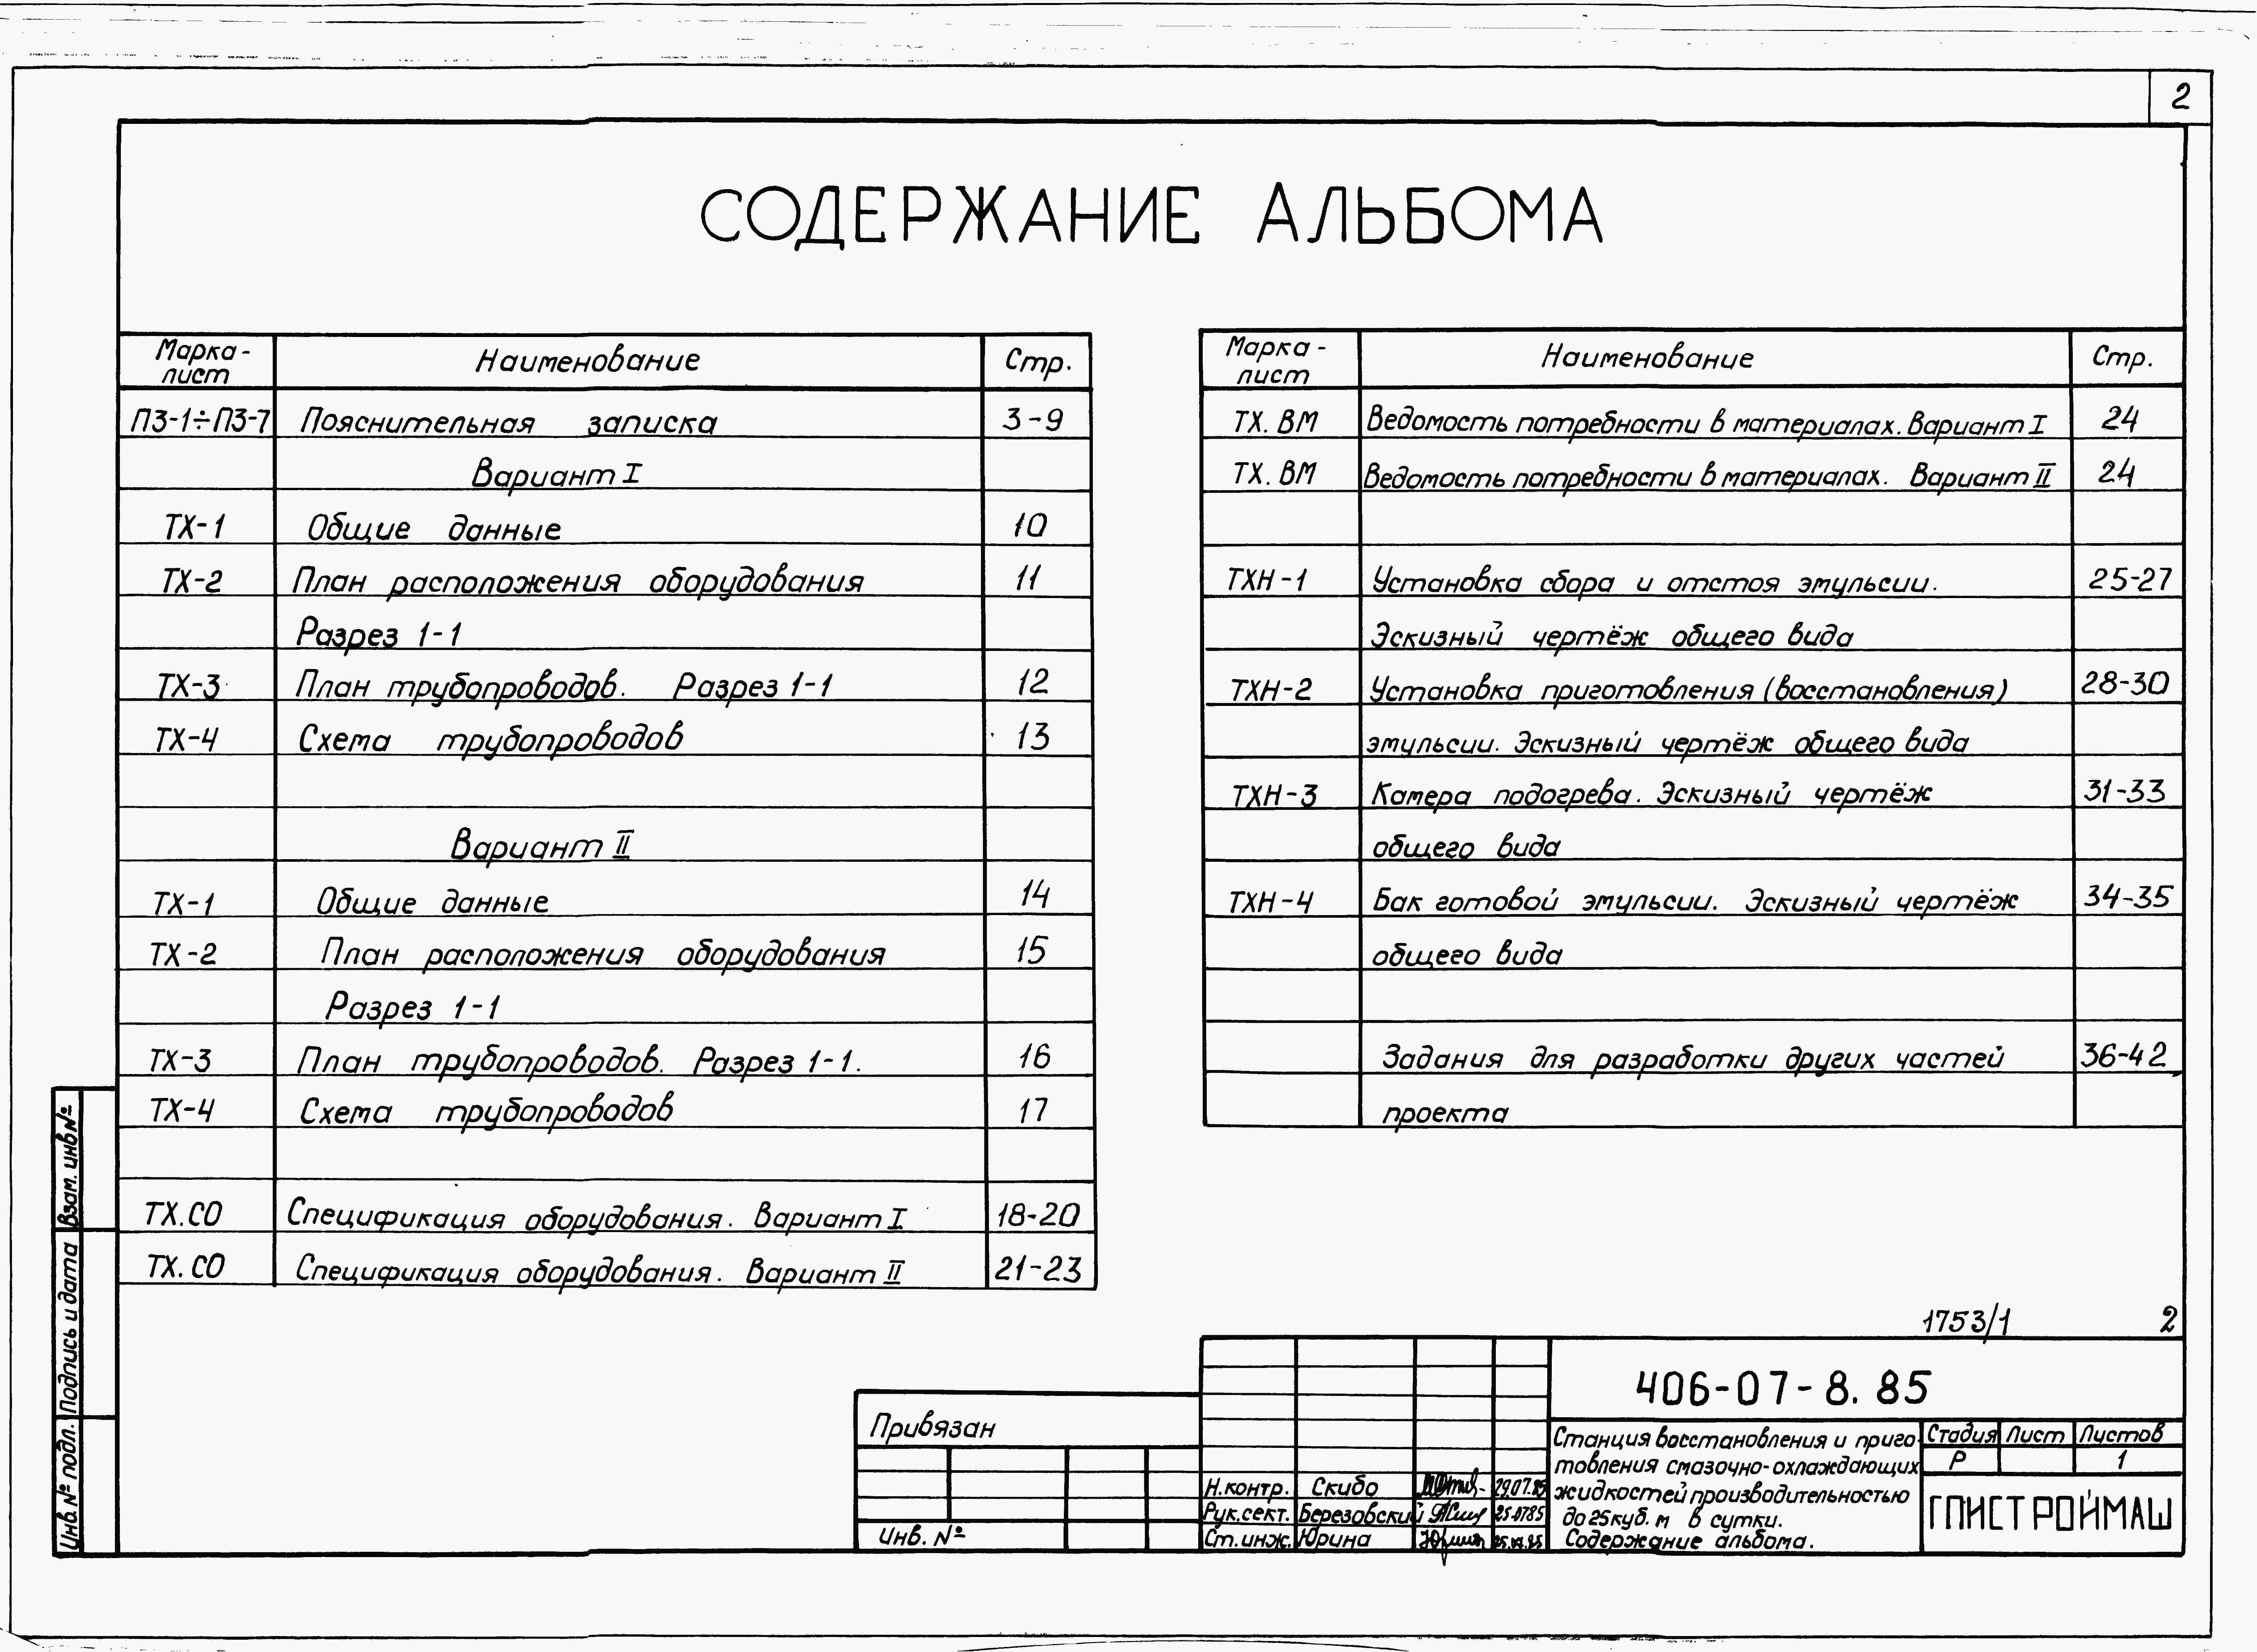 2
СОДЕРЖАНИЕ АЛЬБОМА
Марка-лист Наименование Стр.
ПЗ-1÷ПЗ-7 Пояснительная записка 3-9
Вариант I
ТХ-1 Общие данные 10
ТХ-2 План расположения оборудования 11
Разрез 1-1
ТХ-3 План трубопроводов. Разрез 1-1 12
ТХ-4 Схема трубопроводов 13
Вариант II
ТХ-1 Общие данные 14
ТХ-2 План расположения оборудования 15
Разрез 1-1
ТХ-3 План трубопроводов. Разрез 1-1. 16
ТХ-4 Схема трубопроводов 17
ТХ.СО Спецификация оборудования. Вариант I 18-20
ТХ.СО Спецификация оборудования. Вариант II 21-23
Марка-лист Наименование Стр.
ТХ. ВМ Ведомость потребности в материалах. Вариант I 24
ТХ. ВМ Ведомость потребности в материалах. Вариант II 24
ТХН-1 Установка сбора и отстоя эмульсии. 25-27
Эскизный чертёж общего вида
ТХН-2 Установка приготовления (восстановления) 28-30
эмульсии. Эскизный чертёж общего вида
ТХН-3 Камера подогрева. Эскизный чертёж 31-33
общего вида
ТХН-4 Бак готовой эмульсии. Эскизный чертёж 34-35
общего вида
Задания для разработки других частей 36-42
проекта
Взам. инв №
Подпись и дата
Инв № подл.
1753/1 2
Привязан
Инв. №
Н.контр. Скибо 29.07.85
Рук.сект. Березовский 25.0785
Ст.инж. Юрина
406-07-8.85
Станция восстановления и приго-
товления смазочно-охлаждающих
жидкостей производительностью
до 25 куб. м в сутки.
Содержание альбома.
Стадия Лист Листов
Р 1
ГПИСТРОЙМАШ